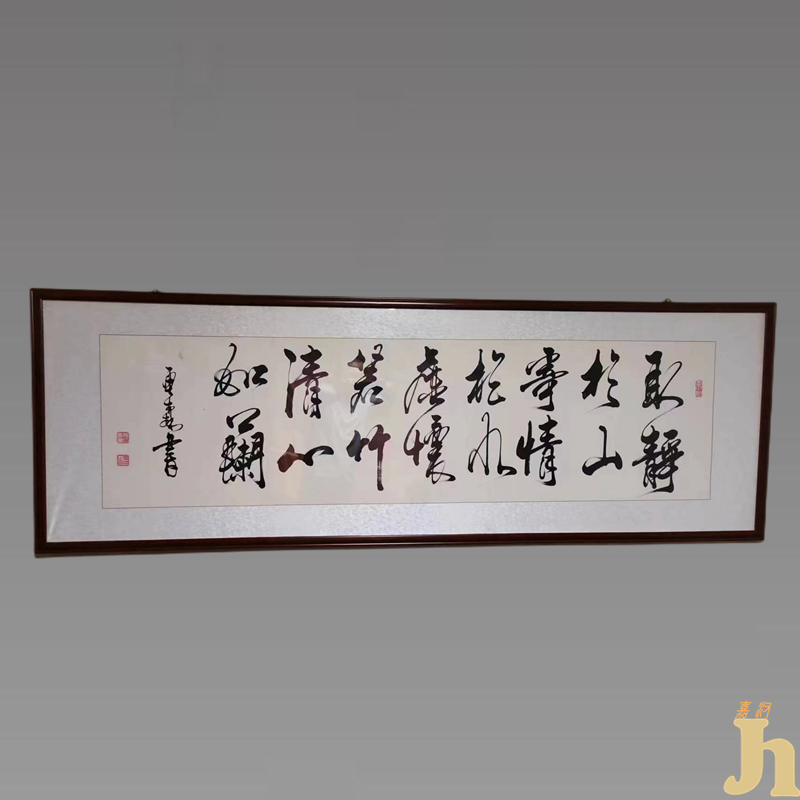 取靜
於山
寄情
於水
虛懷
若竹
清心
如蘭
書
jh